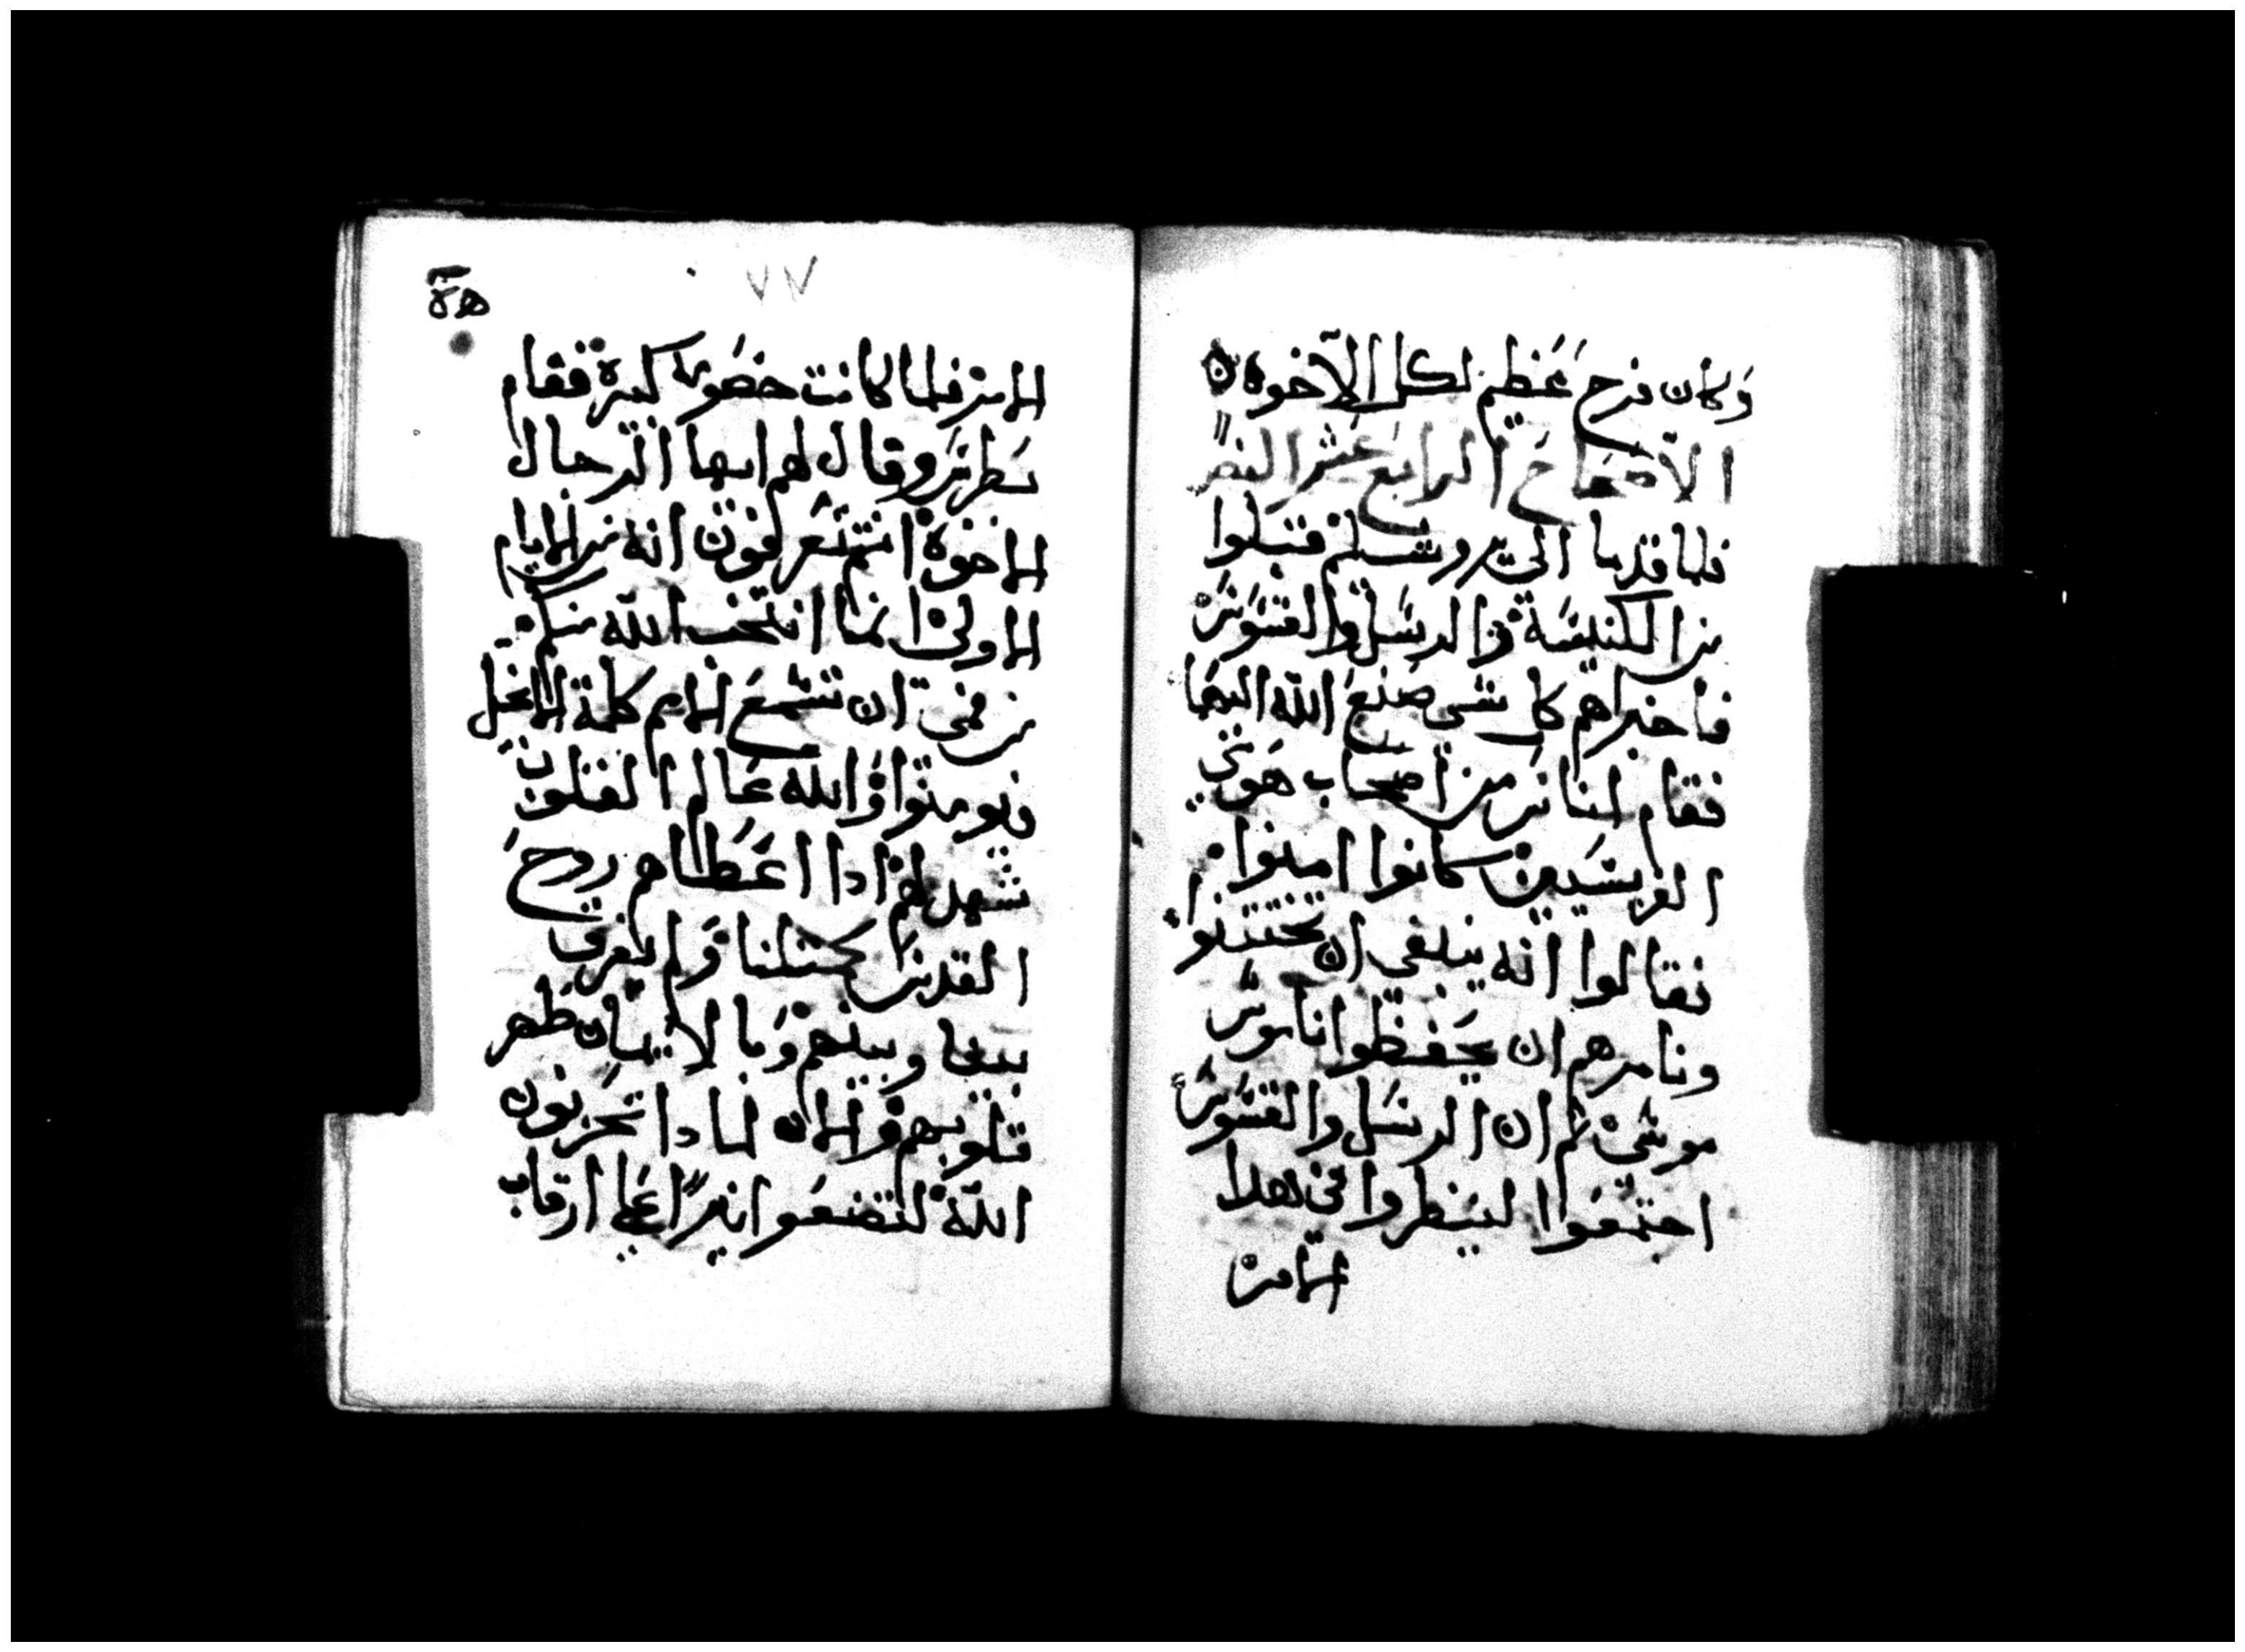 وكان فرح عظيم لكل الاخوه
الاصحاح الرابع عشر
فلما قدما الي يروشليم قبلوا
من الكنيسة والرسل والقسوس
فاخبراهم كل شي صنع الله اليهما
فقام اناس من اصحاب هوي
الفريسيين كانوا امنوا
فقالوا انه ينبغي ان يختتنوا
ونامرهم ان يحفظوا ناموس
موسي ثم ان الرسل والقسوس
اجتمعوا لينظروا في هدا
الامر
٧٧
الامر فلما كانت خصومه كبيرة فقام
بطرس وقال لهم ايها الرجال
الاخوة انتم تعرفون انه من الايام
الاولي انما انتخب الله منكم
من فمي ان تسمع الامم كلمة الانجيل
ويومنوا والله عالم القلوب
شهد لهم ادا اعطاهم روح
القدس كمثلنا ولم يفرق
بيننا وبينهم وبالايمان طهر
قلوبهم والان لمادا تجربون
الله لتضعوا نيرا علي ارقاب